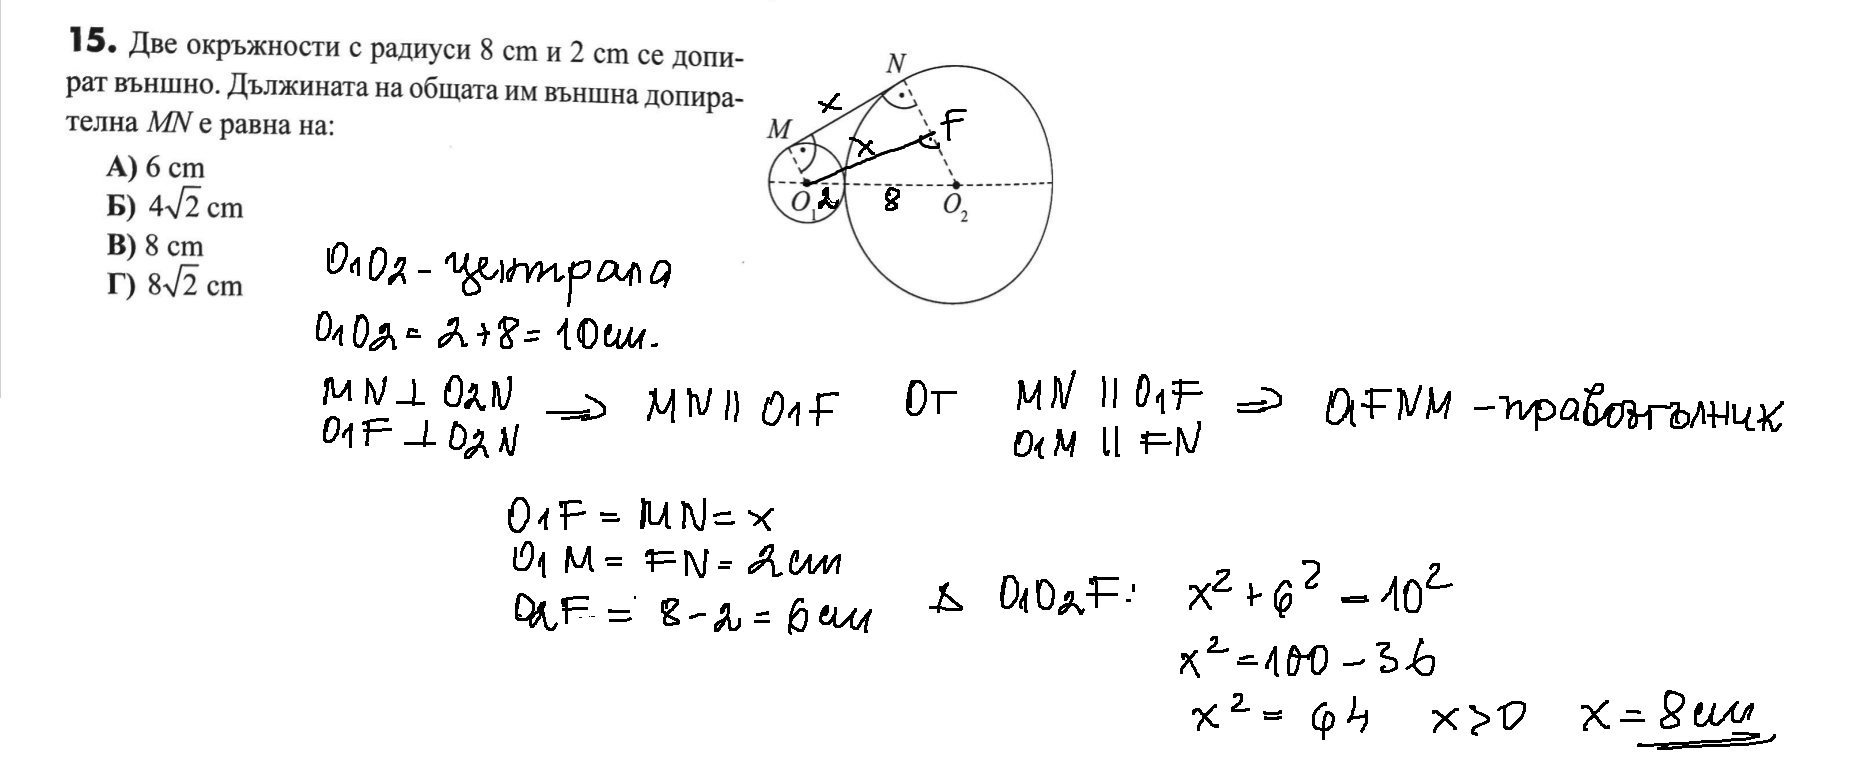 15. Две окръжности с радиуси 8 cm и 2 cm се допи-
рат външно. Дължината на общата им външна допира-
телна MN е равна на:
А) 6 cm
Б) 4√2 cm
В) 8 cm
Г) 8√2 cm
N
x
F
M
x
O₁
2
8
O₂
O1O2 - централа
O1O2 = 2 + 8 = 10 cm.
MN ⊥ O2N
O1F ⊥ O2N
⇒ MN || O1F
От
MN || O1F
O1M || FN
⇒ O1FNM - правоъгълник
O1F = MN = x
O1M = FN = 2 cm
O2F = 8 - 2 = 6 cm
Δ O1O2F: x² + 6² = 10²
x² = 100 - 36
x² = 64 x > 0 x = 8 cm